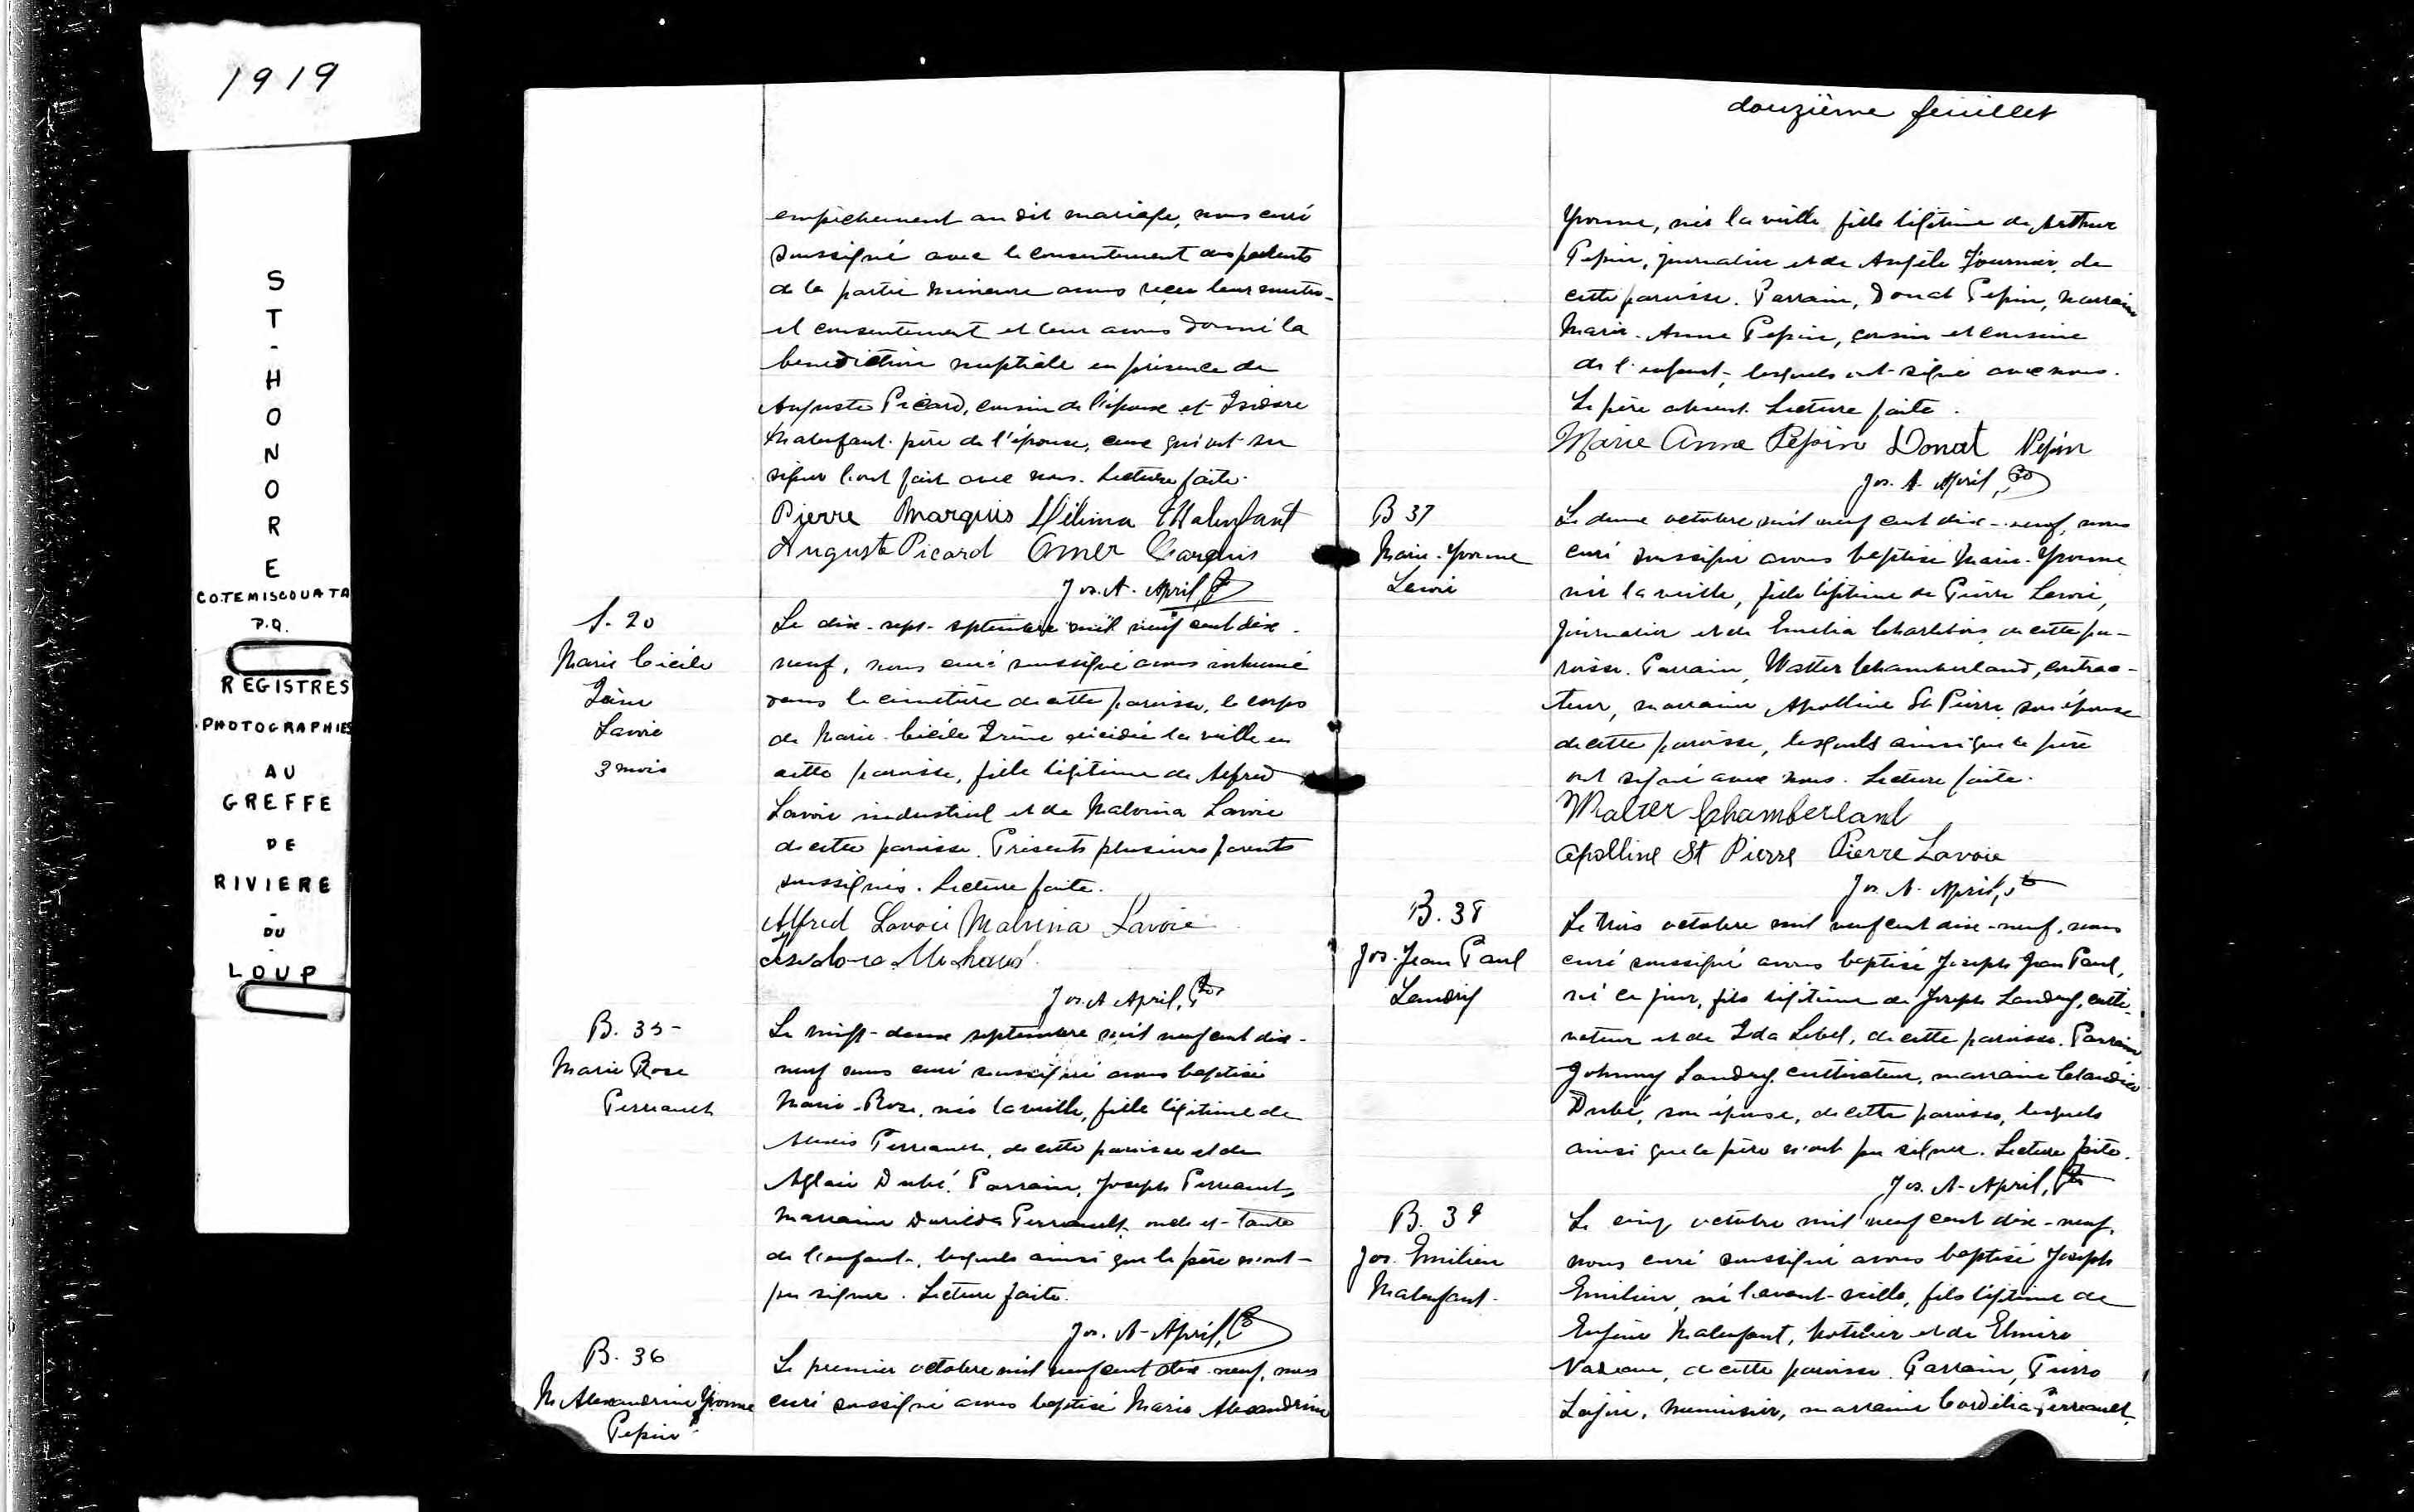 1919
S
T
-
H
O
N
O
R
E
CO.TEMISCOUATA
P.Q.
REGISTRES
PHOTOGRAPHIES
AU
GREFFE
DE
RIVIERE
-
DU
-
LOUP
empêchement au dit mariage, nous curé
soussigné avec le consentement des parents
de la partie mineure avons reçu leur mutu-
el consentement et leur avons donné la
bénédiction nuptiale en présence de
Auguste Picard, cousin de l'épouse et Isidore
Malenfant père de l'épouse, ceux qui ont su
signer l'ont fait avec nous. Lecture faite.
Pierre Marquis Délima Malenfant
Auguste Picard Omer Marquis
Jos. A. April, Ptre
S. 20
Marie Cécile
Irène
Lavoie
3 mois
Le dix-sept septembre mil neuf cent dix-
neuf, nous curé soussigné avons inhumé
dans le cimetière de cette paroisse, le corps
de Marie-Cécile Irène décédée la veille en
cette paroisse, fille légitime de Alfred
Lavoie industriel et de Malvina Lavoie
de cette paroisse. Présents plusieurs parents
soussignés. Lecture faite.
Alfred Lavoie Malvina Lavoie
Isidore Michaud
Jos. A April, Ptre
B. 35-
Marie Rose
Perreault
Le vingt-deux septembre mil neuf cent dix-
neuf nous curé soussigné avons baptisé
Marie-Rose, née la veille, fille légitime de
Alexis Perreault, de cette paroisse et de
Aglaée Dubé. Parrain, Joseph Perreault,
marraine Perreault oncle et tante
de l'enfant, lesquels ainsi que le père n'ont
pu signer. Lecture faite.
Jos. A. April, Ptre
B. 36
M. Alexandrine Yvonne
Pepin
Le premier octobre mil neuf cent dix-neuf, nous
curé soussigné avons baptisé Marie Alexandrine
douzième feuillet
Yvonne, née la veille fille légitime de Arthur
Pepin, journalier et de Angèle Fournier, de
cette paroisse. Parrain, Donat Pepin, marraine
Marie-Anne Pepin, cousin et cousine
de l'enfant, lesquels ont signé avec nous.
Le père absent. Lecture faite.
Marie Anna Pepin Donat Pepin
Jos. A. April, Ptre
B 37
Marie-Yvonne
Lavoie
Le deux octobre mil neuf cent dix-neuf, nous
curé soussigné avons baptisé Marie-Yvonne
née la veille, fille légitime de Pierre Lavoie,
journalier et de Emelia Charlebois de cette pa-
roisse. Parrain, Walter Chamberland, contrac-
teur, marraine, Apolline St Pierre son épouse
de cette paroisse, lesquels ainsi que le père
ont signé avec nous. Lecture faite.
Walter Chamberland
Apolline St Pierre Pierre Lavoie
Jos. A. April, Ptre
B. 38
Jos. Jean Paul
Landry
Le trois octobre mil neuf cent dix-neuf, nous
curé soussigné avons baptisé Joseph Jean Paul,
né ce jour, fils légitime de Joseph Landry, culti-
vateur et de Ida Lebel, de cette paroisse. Parrain
Johnny Landry, cultivateur, marraine Claudia
Dubé, son épouse, de cette paroisse, lesquels
ainsi que le père n'ont pu signer. Lecture faite.
Jos. A. April, Ptre
B. 39
Jos. Emilien
Malenfant
Le cinq octobre mil neuf cent dix-neuf,
nous curé soussigné avons baptisé Joseph
Emilien, né l'avant-veille, fils légitime de
Eugène Malenfant, hotelier et de Elmire
Nadeau, de cette paroisse. Parrain, Pierre
Lajoie, menuisier, marraine Cordélia Perreault,